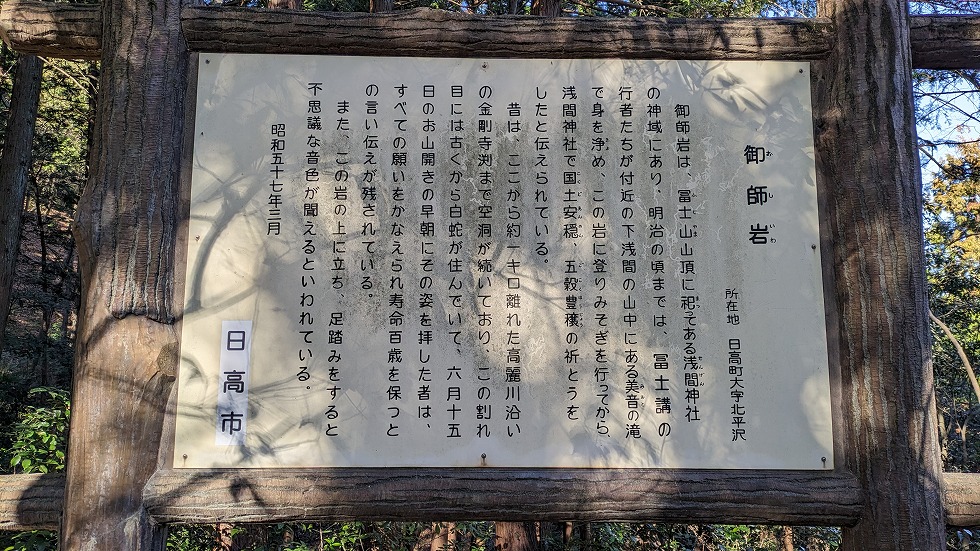 御師岩
おしいわ
所在地 日高町大字北平沢
御師岩は、冨士山山頂に祀てある浅間神社
の神域にあり、明治の頃までは、冨士講の
行者たちが付近の下浅間の山中にある美音の滝
で身を浄め、この岩に登りみそぎを行ってから、
浅間神社で国土安穏、五穀豊穣の祈とうを
したと伝えられている。
昔は、ここから約一キロ離れた高麗川沿い
の金剛寺渕まで空洞が続いており、この割れ
目には古くから白蛇が住んでいて、六月十五
日のお山開きの早朝にその姿を拝した者は、
すべての願いをかなえられ寿命百歳を保つと
の言い伝えが残されている。
また、この岩の上に立ち、足踏みをすると
不思議な音色が聞えるといわれている。
昭和五十七年三月
日高市